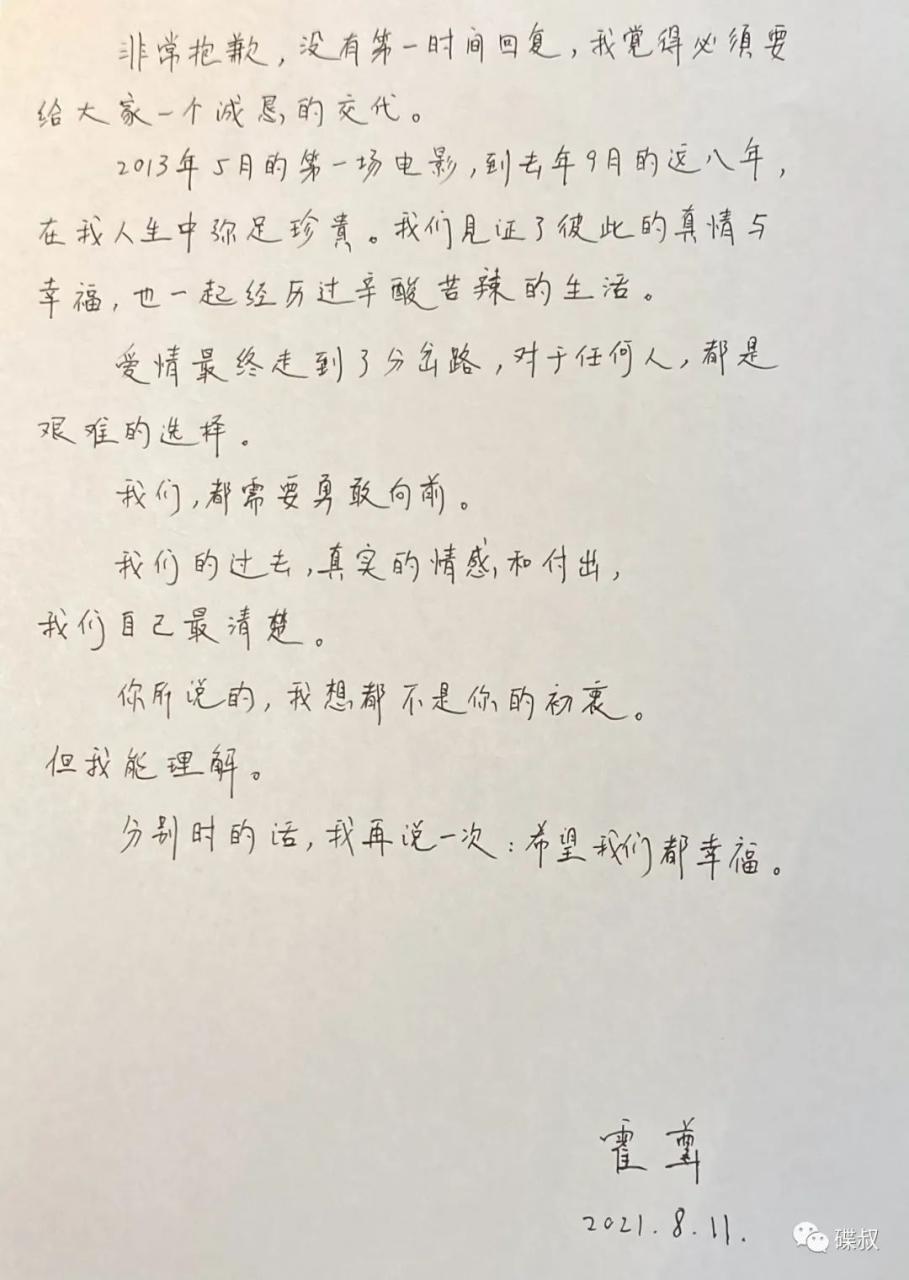 非常抱歉，没有第一时间回复，我觉得必须要
给大家一个诚恳的交代。
2013年5月的第一场电影，到去年9月的这八年，
在我人生中弥足珍貴。我们见证了彼此的真情与
幸福，也一起经历过辛酸苦辣的生活。
爱情最终走到了分岔路，对于任何人，都是
艰难的选择。
我们，都需要勇敢向前。
我们的过去，真实的情感和付出，
我们自己最清楚。
你所说的，我想都不是你的初衷。
但我能理解。
分别时的话，我再说一次：希望我们都幸福。
霍尊
2021.8.11.
碟叔